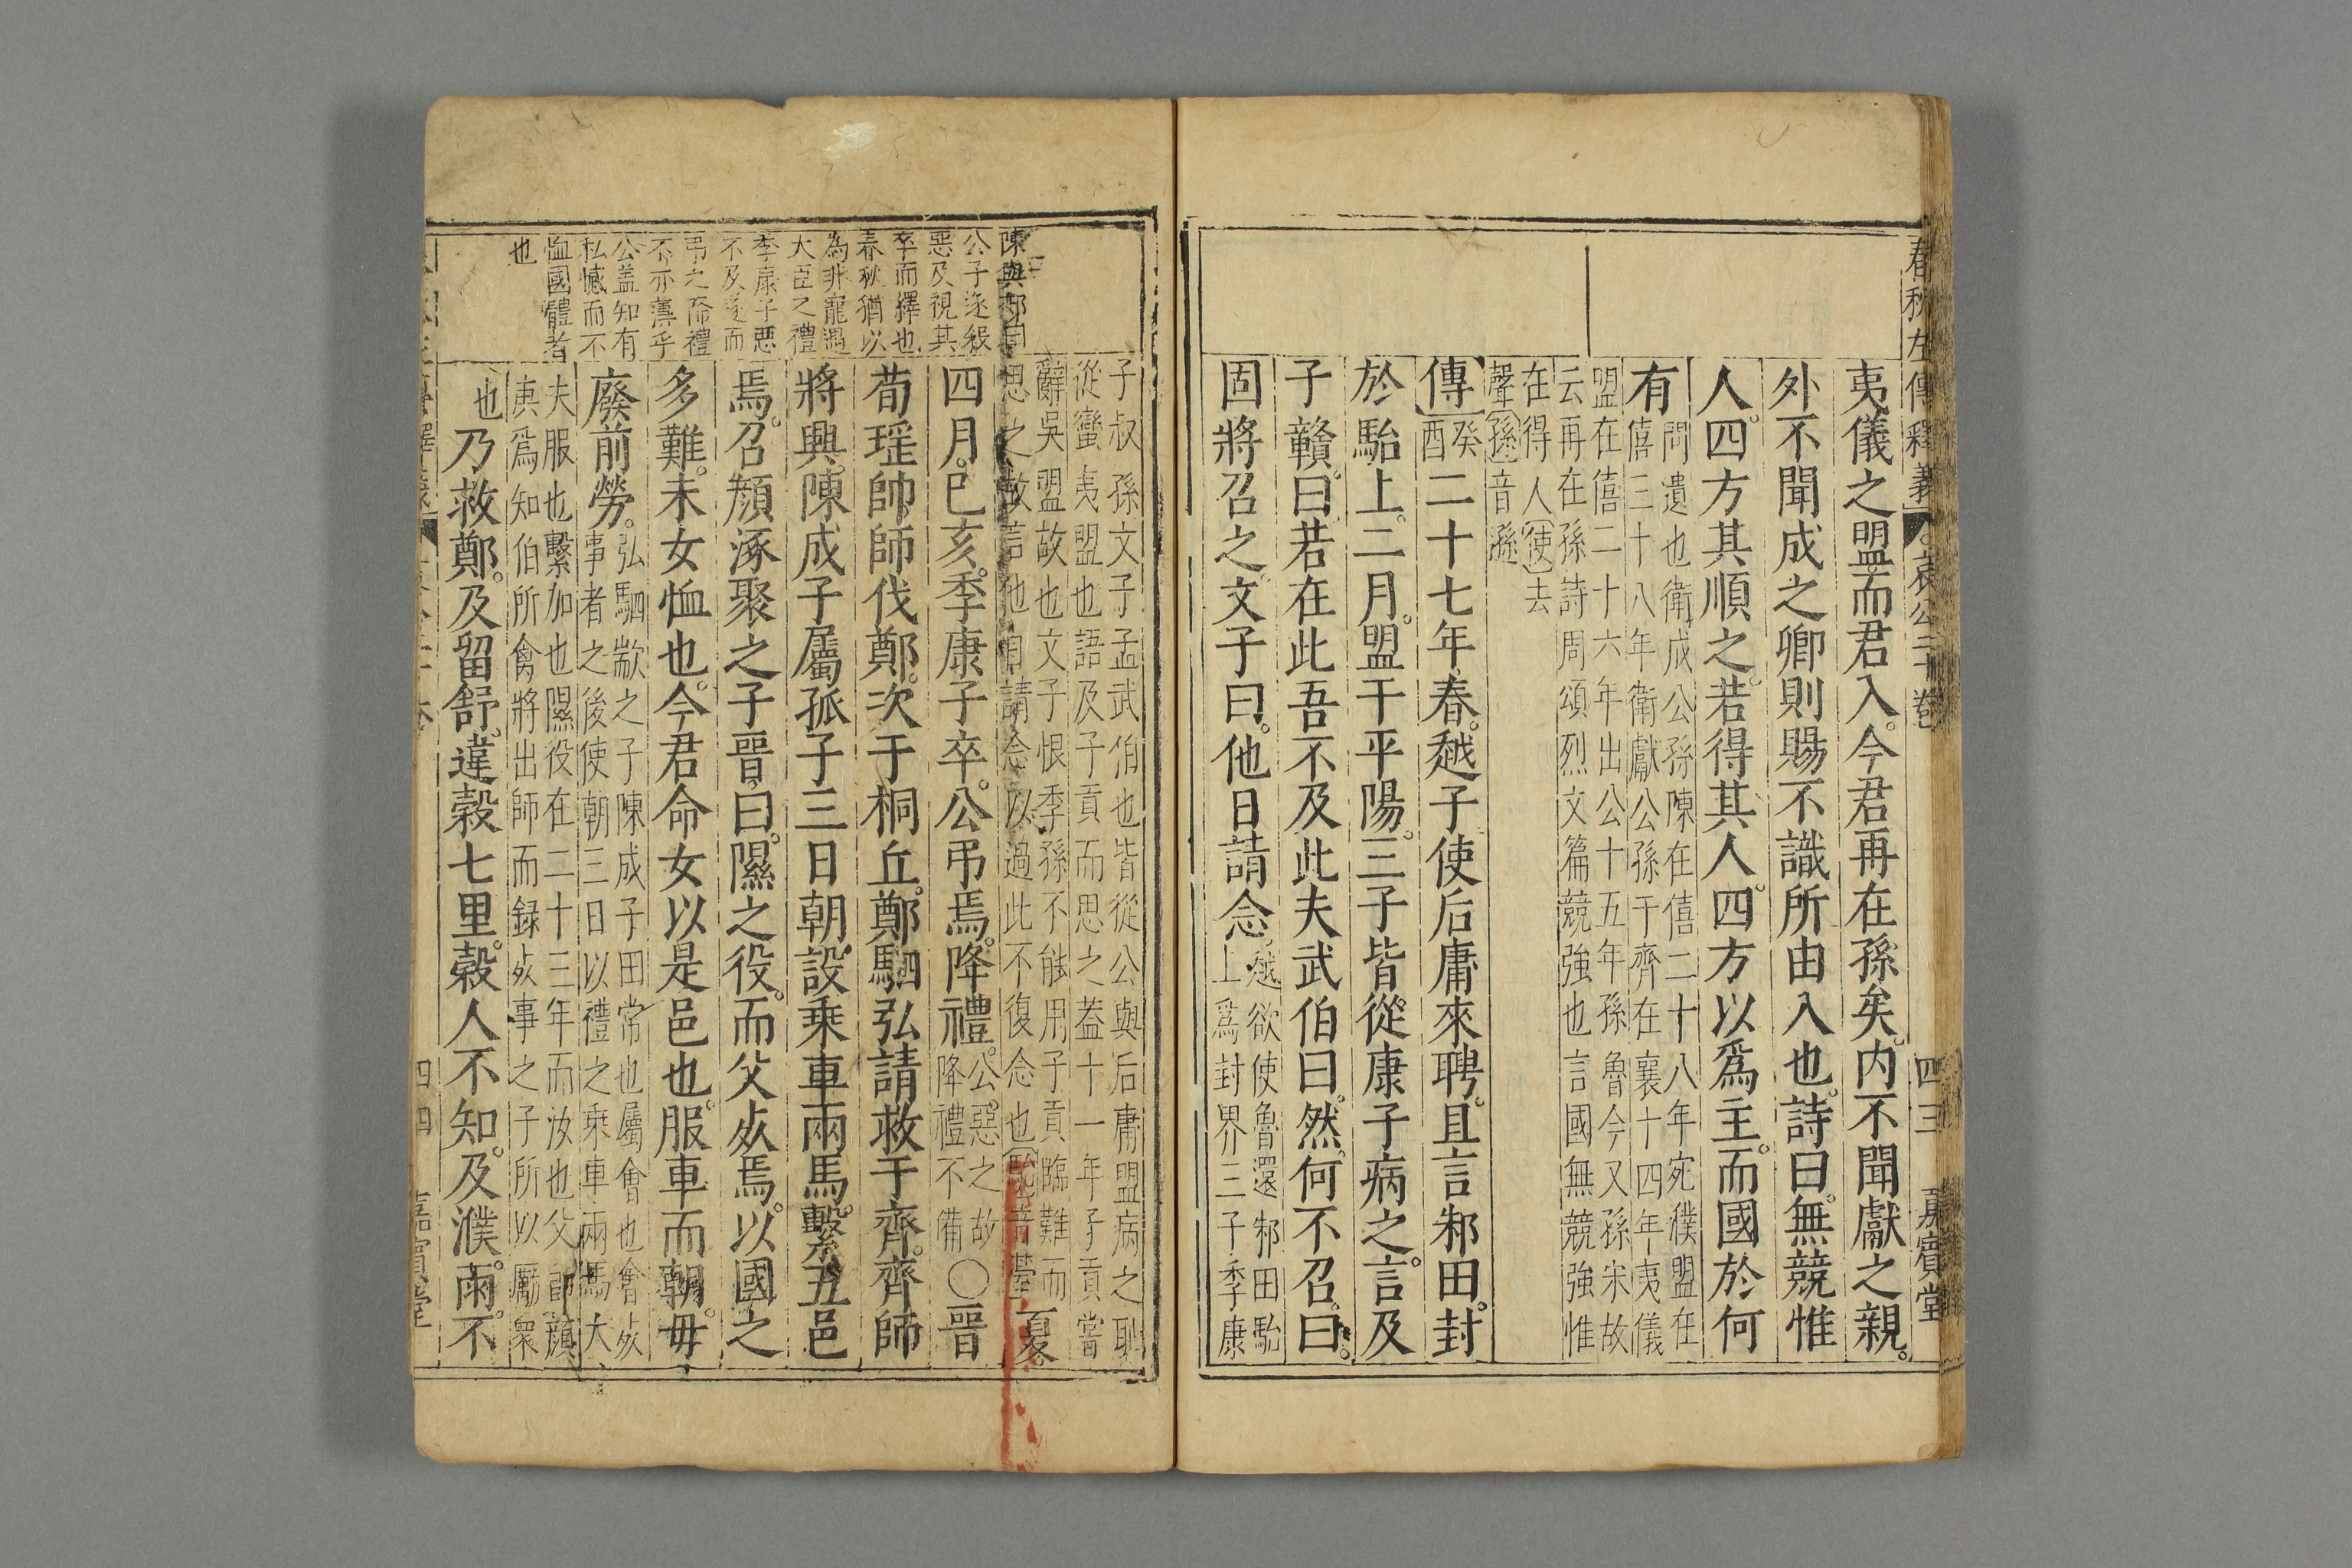 春秋左傳釋義 哀公二十卷 四三 嘉賓堂
夷儀之盟而君入今君再在孫矣内不聞獻之親
外不聞成之卿則賜不識所由入也詩曰無競惟
人四方其順之若得其人四方以爲主而國於何
有
問遺也衛成公孫陳在僖二十八年宛濮盟在
僖三十八年衛獻公孫于齊在襄十四年夷儀
盟在僖二十六年出公十五年孫魯今又孫宋故
云再在孫詩周頌烈文篇競強也言國無競強惟
在得人使去
聲孫音遜
傳癸酉二十七年春越子使后庸來聘且言邾田封
於駘上二月盟于平陽三子皆從康子病之言及
子贛曰若在此吾不及此夫武伯曰然何不召曰
固將召之文子曰他日請念
越欲使魯還邾田駘
上爲封界三子季康
子叔孫文子孟武伯也皆從公與后庸盟病之耻
從蠻夷盟也語及子貢而思之蓋十一年子貢嘗
辭吳盟故也文子恨季孫不能用子貢臨難而
思之故言他日請念以過此不復念也駘音臺
夏
四月己亥季康子卒公弔焉降禮
公惡之故
降禮不備
〇晉
荀瑶帥師伐鄭次于桐丘鄭駟弘請救于齊齊師
將興陳成子屬孤子三日朝設乗車兩馬繫五邑
焉召顔涿聚之子晉曰隰之役而父死焉以國之
多難未女恤也今君命女以是邑也服車而朝毋
廢前勞
弘駟歂之子陳成子田常也屬會也會死
事者之後使朝三日以禮之乗車兩馬大
夫服也繫加也隰役在二十三年而汝也父即顔
庚爲知伯所禽將出師而録死事之子所以厲衆
也
乃救鄭及留舒違榖七里榖人不知及濮雨不
公子遂
惡及視其
卒而繹也
春秋猶以
為非寵遇
大臣之禮
季康子惡
不及遂而
弔之降禮
不亦薄乎
公盖知有
私憾而不
恤國體者
也
四四 嘉賓堂